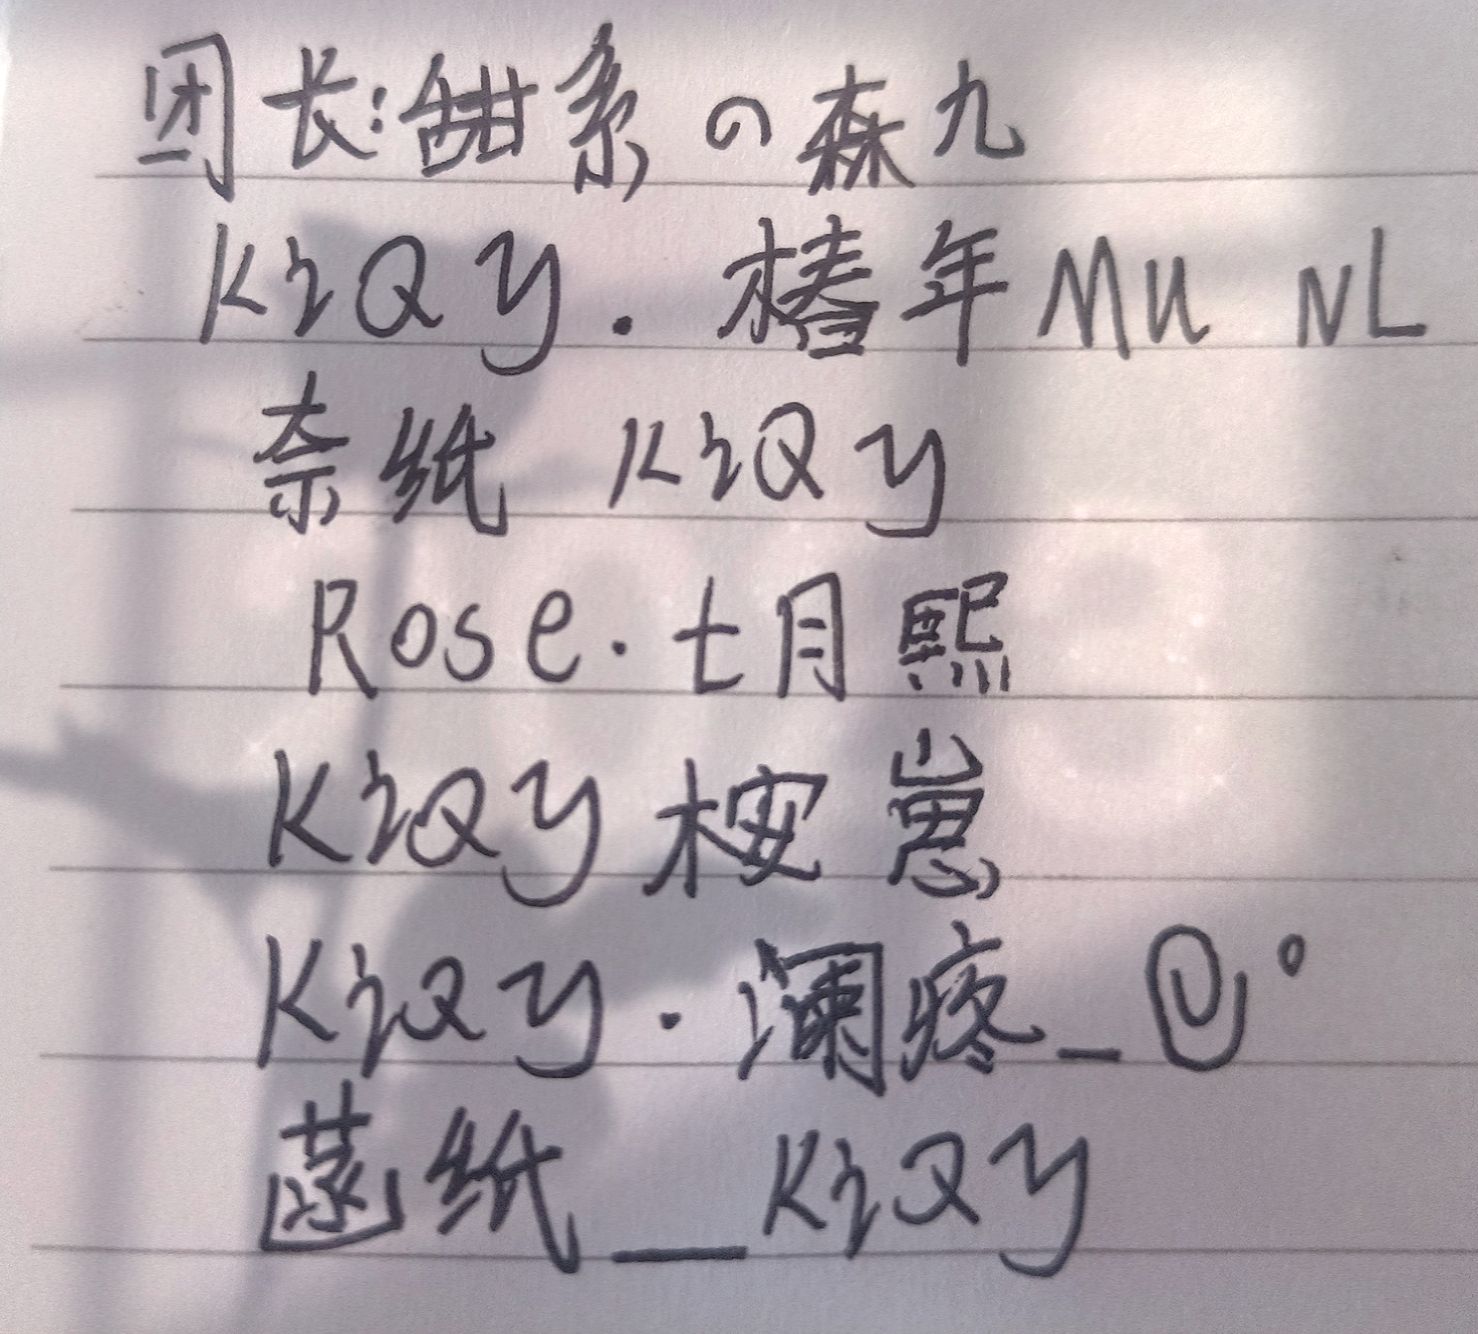 团长:甜系の森九
KiQy.椿年MU NL
奈纸 KiQy
Rose.七月熙
KiQy桉崽
KiQy.澜疼_@°
纸__KiQy